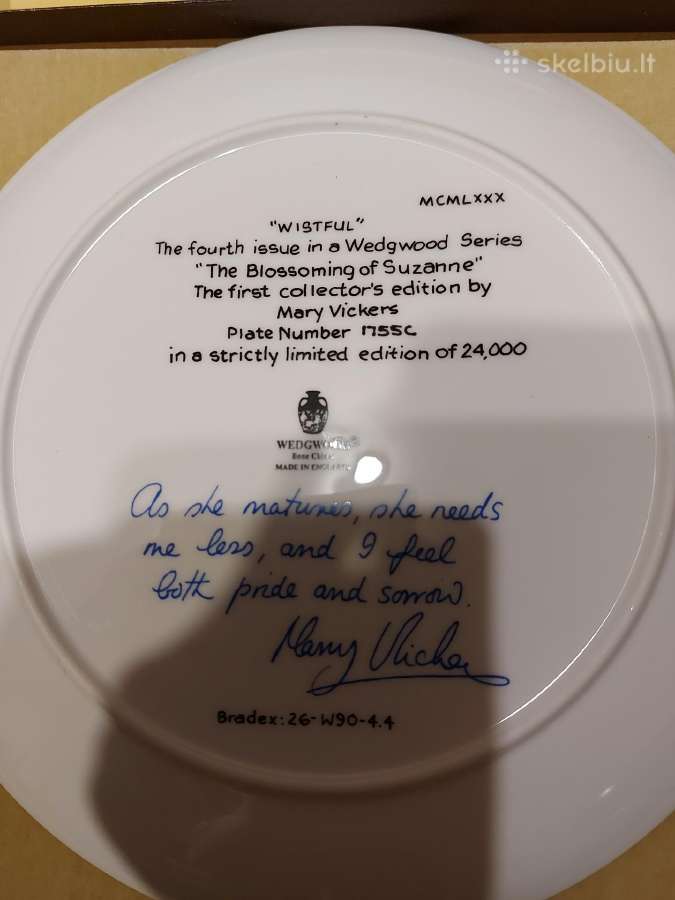 skelbiu.lt
MCMLXXX
"WISTFUL"
The fourth issue in a Wedgwood Series
"The Blossoming of Suzanne"
The first collector's edition by
Mary Vickers
Plate Number 1755C
in a strictly limited edition of 24,000
WEDGWOOD
Bone China
MADE IN ENGLAND
As she matures, she needs
me less, and I feel
both pride and sorrow.
Mary Vickers
Bradex: 26-W90-4.4